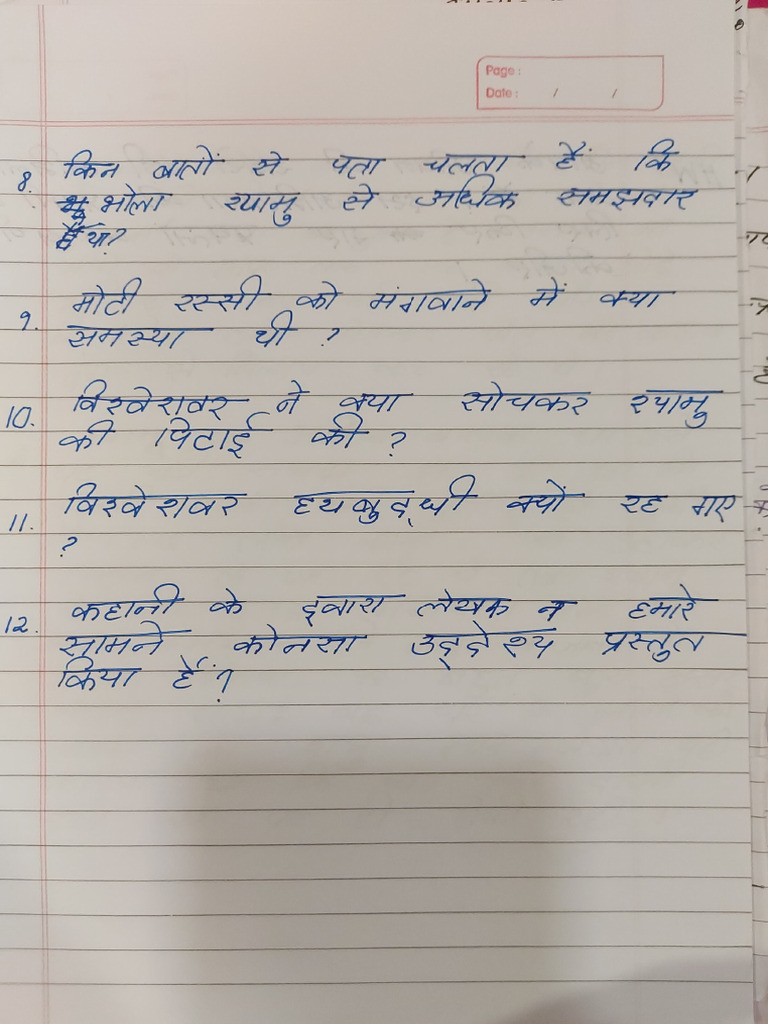 Page :
Date : / /
8. किन बातों से पता चलता हैं कि
भोला श्यामु से अधिक समझदार
था?
9. मोटी रस्सी को मंगवाने में क्या
समस्या थी ?
10. विश्वेशवर ने क्या सोचकर श्यामु
की पिटाई की ?
11. विश्वेशवर हयबुद्धी क्यों रह गए
?
12. कहानी के द्वारा लेखक न हमारे
सामने कोनसा उद्देश्य प्रस्तुत
किया हैं ?